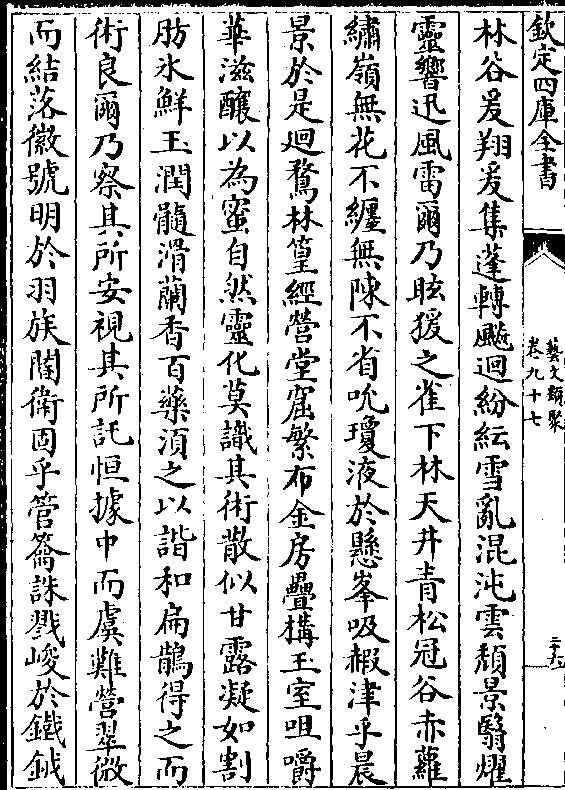 欽定四庫全書
藝文類聚
卷九十七
二十六
林谷爰翔爰集蓬轉飈迴紛紜雪亂混沌雲頽景翳燿
靈響迅風雷爾乃眩猨之雀下林天井青松冠谷赤蘿
繡嶺無花不纏無陳不省吮瓊液於懸峯吸赮津乎晨
景於是迴鶩林篁經營堂窟繁布金房疊構玉室咀嚼
華滋釀以為蜜自然靈化莫識其術散似甘露凝如割
肪氷鮮玉潤髓滑蘭香百藥須之以諧和扁鵲得之而
術良爾乃察其所安視其所託恒據中而虞難營翠微
而結落徽號明於羽族閽衛固乎管籥誅戮峻於鐵鉞